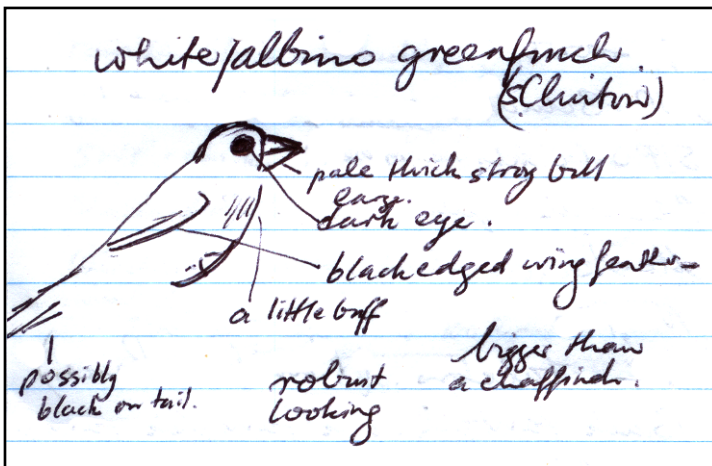 white/albino greenfinch
pale thick strong bill
dark eye.
black edged wing feather
a little buff
possibly
black on tail.
robust
looking
bigger than
a chaffinch.